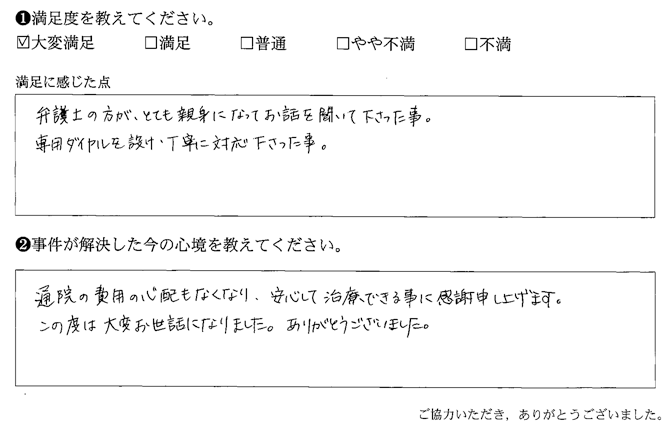 ❶満足度を教えてください。
☑大変満足 □満足 □普通 □やや不満 □不満
満足に感じた点
弁護士の方が、とても親身になってお話を聞いて下さった事。
専用ダイヤルを設け、丁寧に対応下さった事。
❷事件が解決した今の心境を教えてください。
通院の費用の心配もなくなり、安心して治療できる事に感謝申し上げます。
この度は大変お世話になりました。ありがとうございました。
ご協力いただき、ありがとうございました。